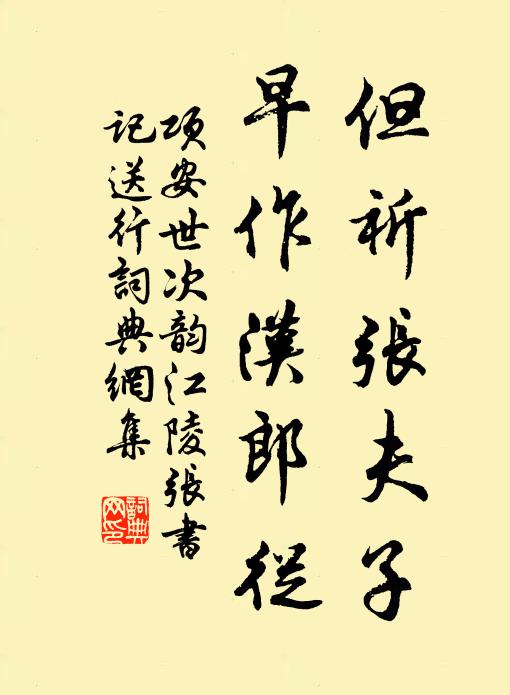 但祈張夫子
早作漢郎從
項安世次韵江陵張書
記送行詞典網集
詞典
网印